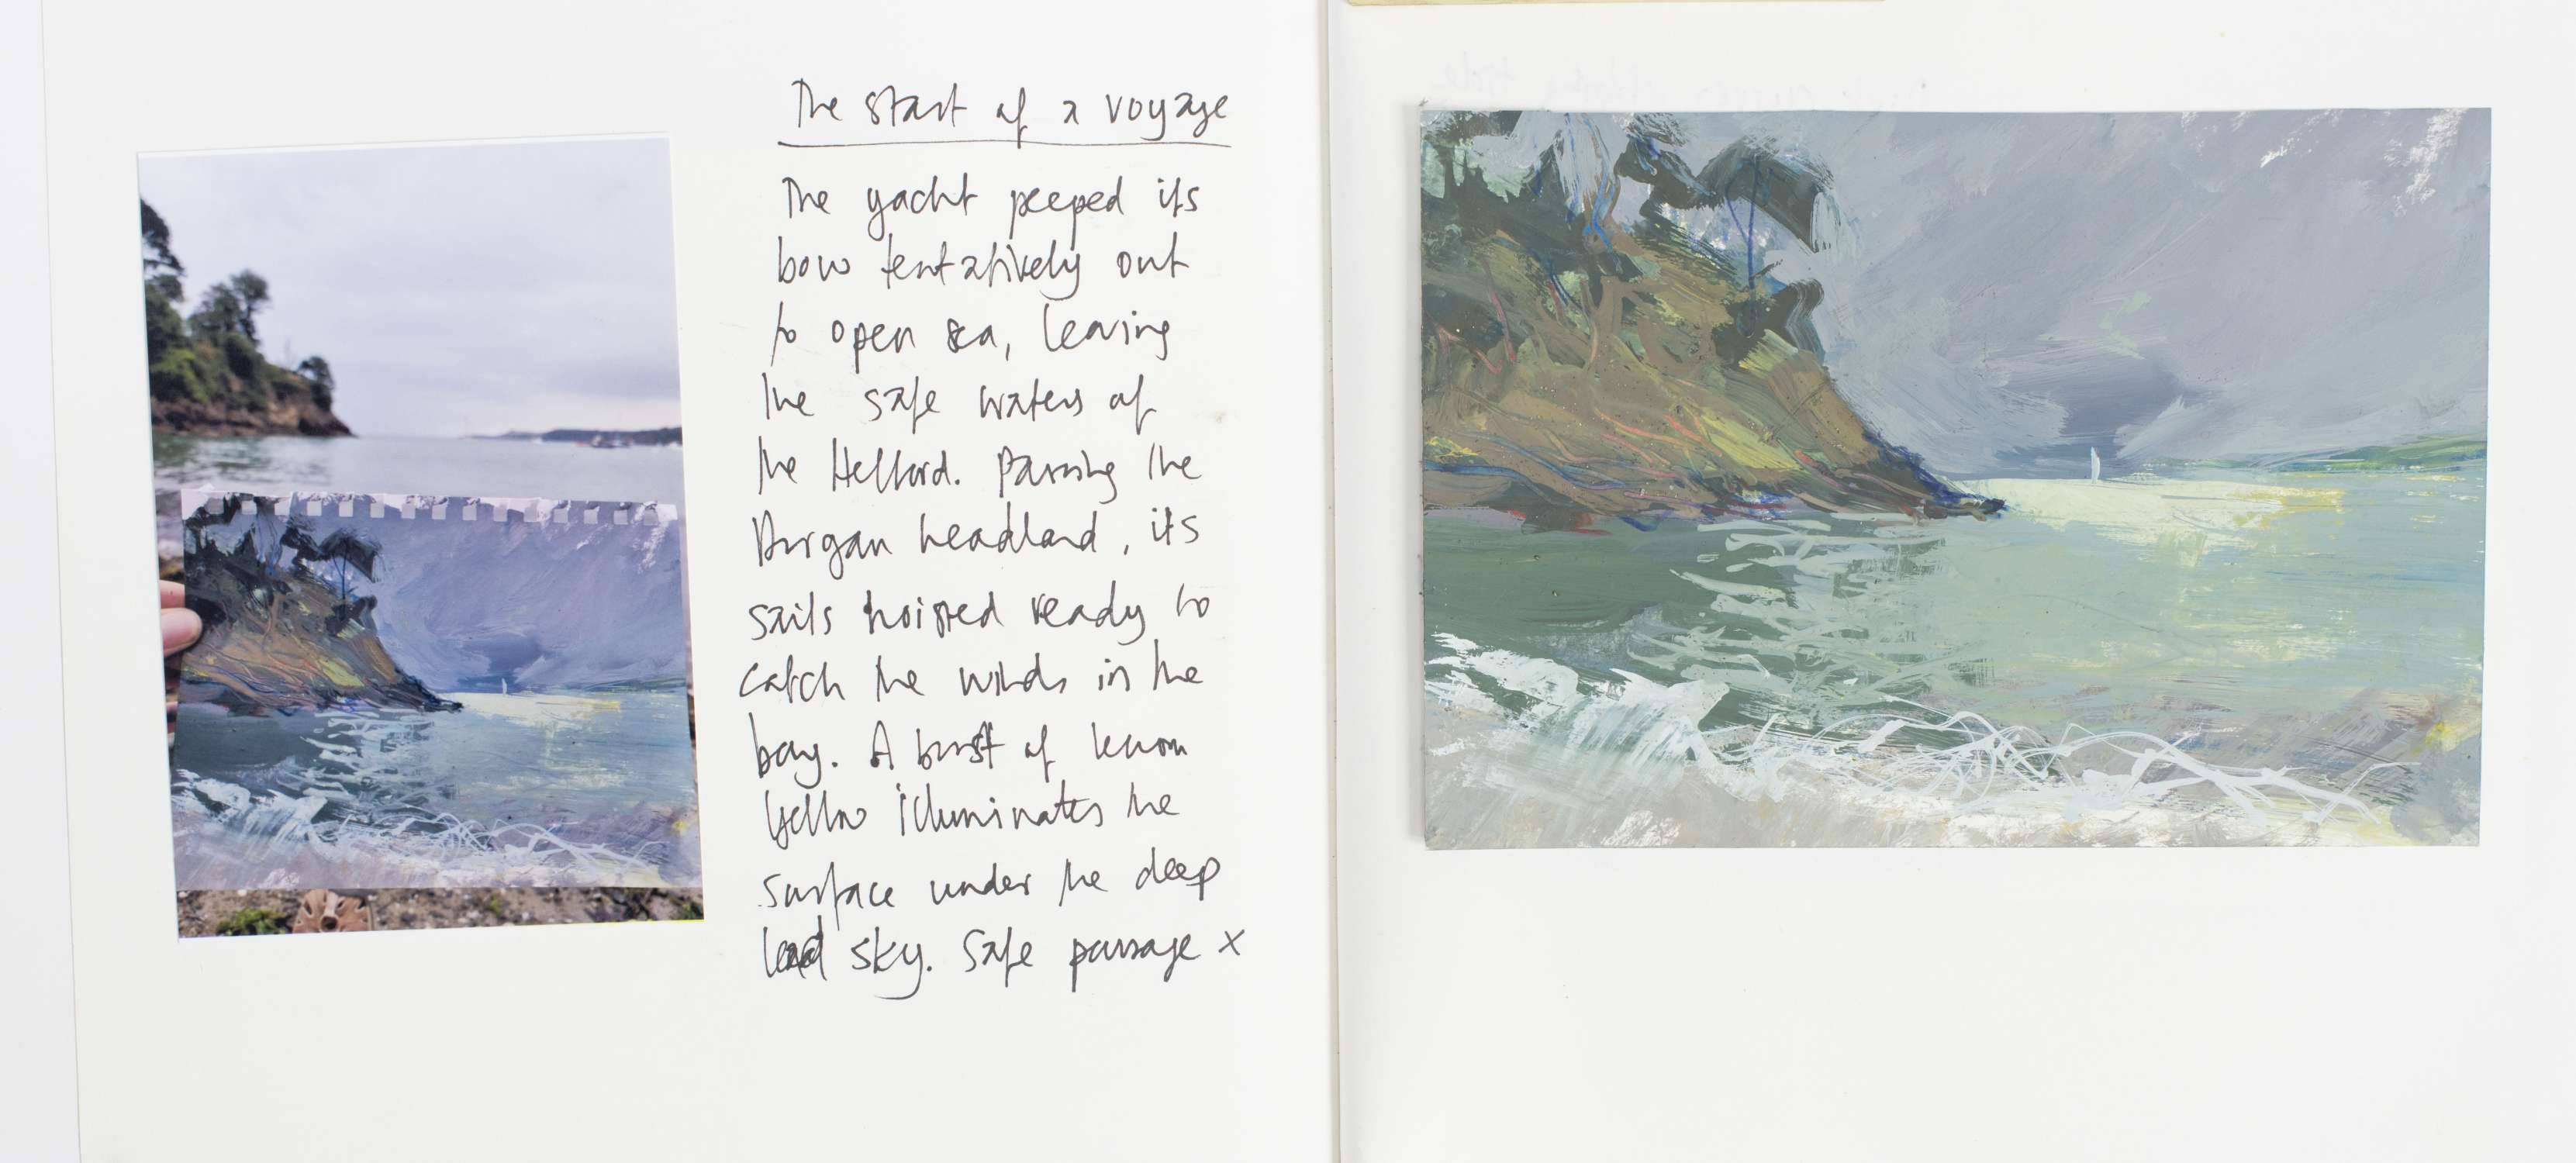 The start of a voyage
The yacht peeped its
bow tentatively out
to open sea, leaving
the safe waters of
the Helford. Passing the
Durgan headland, its
sails hoisted ready to
catch the winds in the
bay. A burst of lemon
yellow illuminates the
surface under the deep
lead sky. Safe passage x